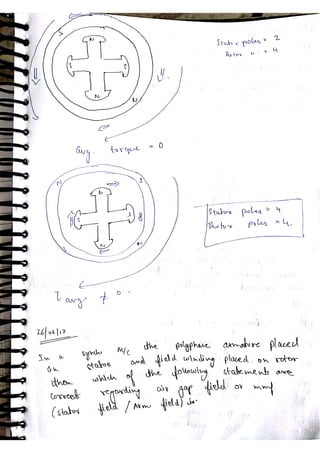 N
S
S
N
N
S
Stator poles = 2
Rotor " = 4
avg. torque = 0
N
S
N
S
S
N
S
N
Stator poles = 4
Rotor poles = 4.
T avg ≠ 0.
In a synch M/C the polyphase armature placed
on stator and field winding placed on rotor
then which of the following statements are
correct regarding air gap field or mmf
(stator field / Arm field) is-